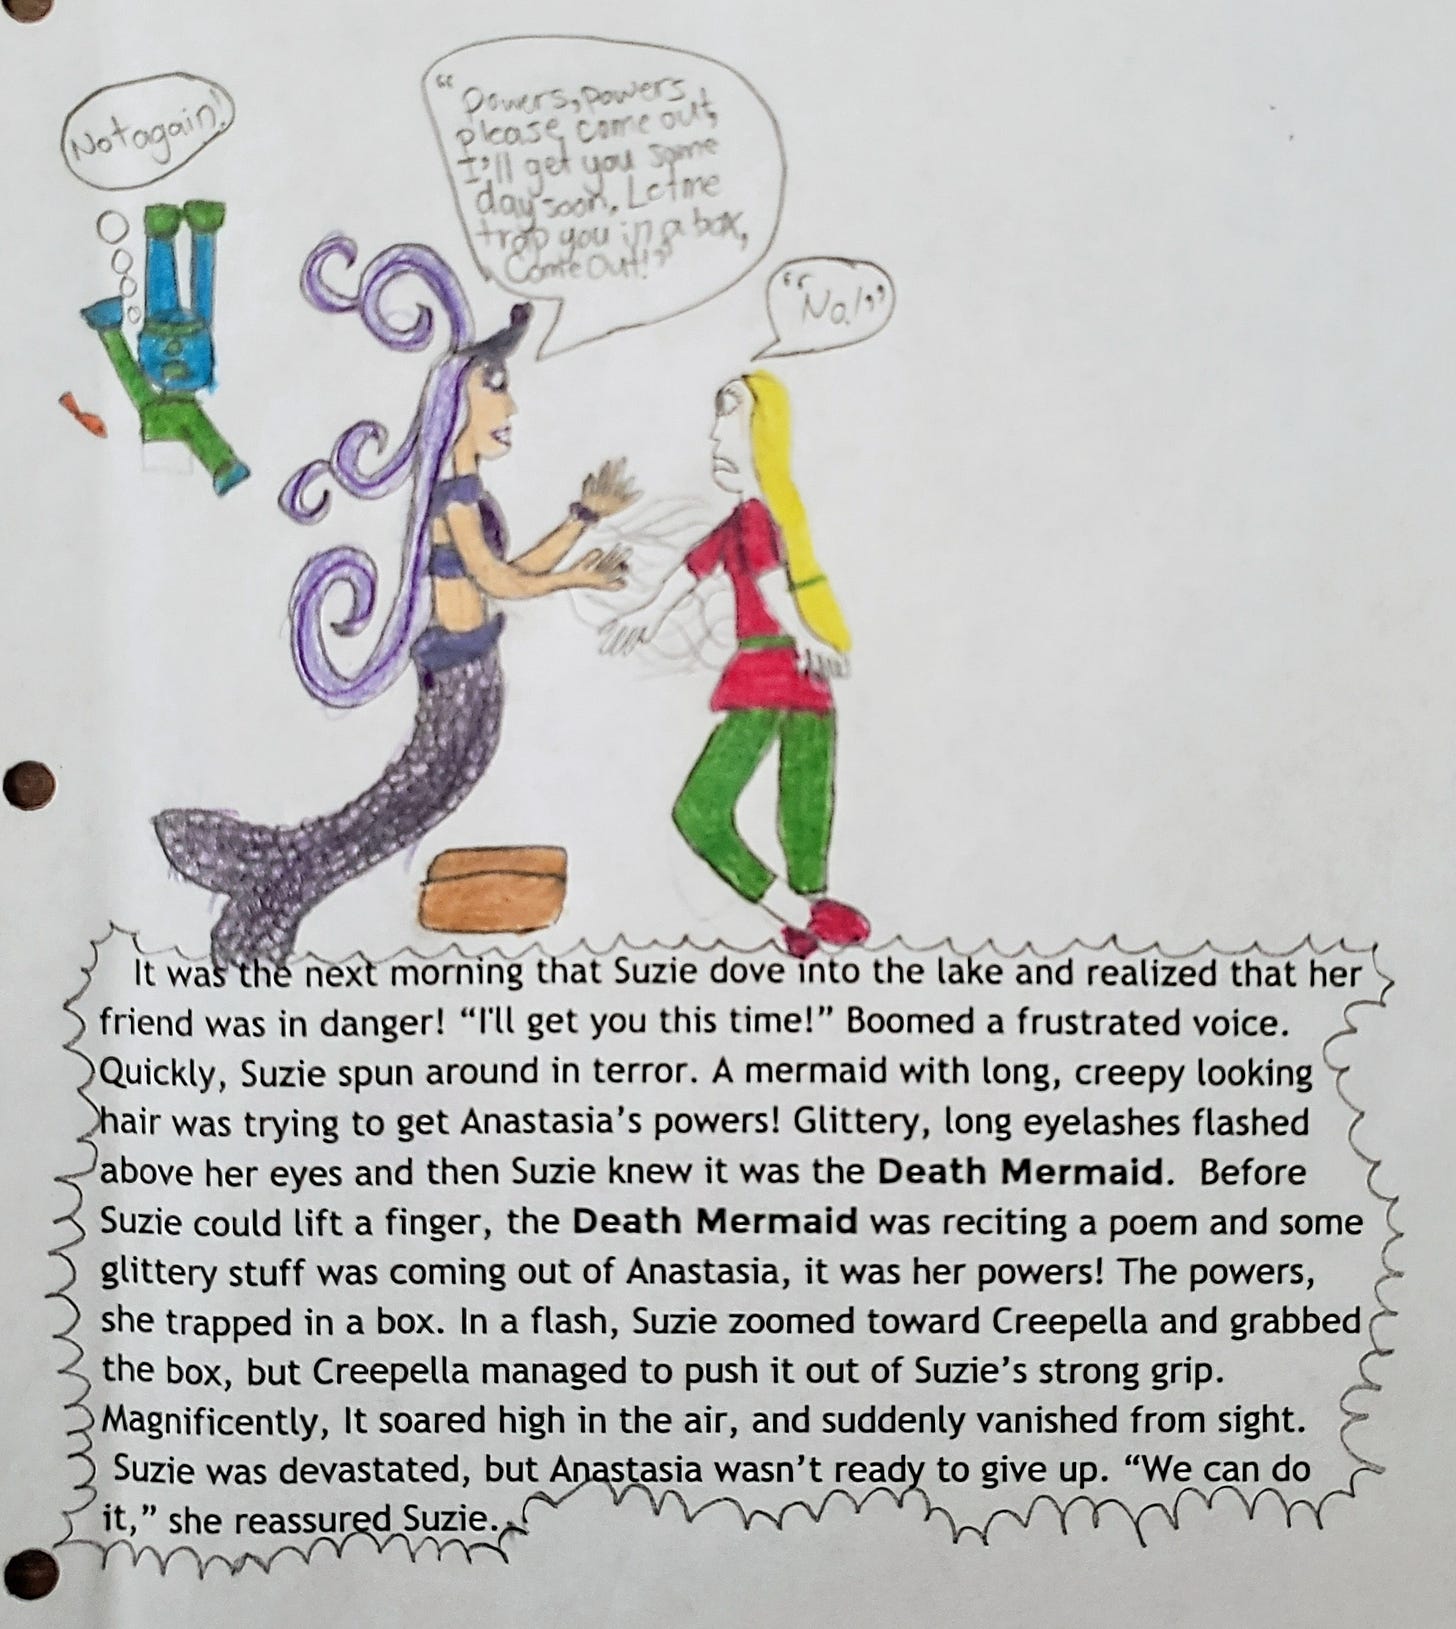 Not again!
"Powers, powers
please come out,
I'll get you some
day soon. Let me
trap you in a box,
Come Out!"
"No!"
It was the next morning that Suzie dove into the lake and realized that her
friend was in danger! “I'll get you this time!” Boomed a frustrated voice.
Quickly, Suzie spun around in terror. A mermaid with long, creepy looking
hair was trying to get Anastasia’s powers! Glittery, long eyelashes flashed
above her eyes and then Suzie knew it was the Death Mermaid. Before
Suzie could lift a finger, the Death Mermaid was reciting a poem and some
glittery stuff was coming out of Anastasia, it was her powers! The powers,
she trapped in a box. In a flash, Suzie zoomed toward Creepella and grabbed
the box, but Creepella managed to push it out of Suzie’s strong grip.
Magnificently, It soared high in the air, and suddenly vanished from sight.
Suzie was devastated, but Anastasia wasn’t ready to give up. “We can do
it,” she reassured Suzie.